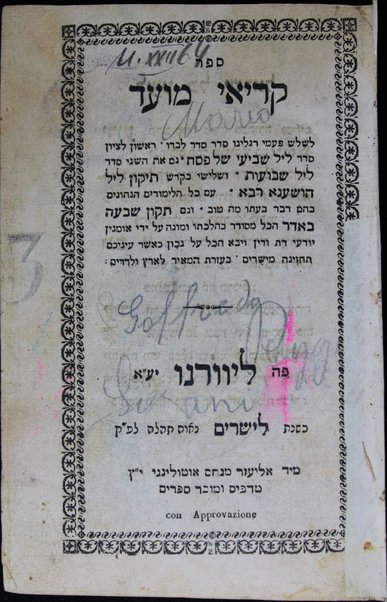 M. XVII 64
ספר
קריאי מועד
Mario
לשלש פעמי רגלינו סדר סדר לברו׃ ראשון לציון
סדר ליל שביעי של פסח׃ וגם את השני סדר
ליל שבועות׃ ושלישי בקדש תיקון ליל
הושענא רבא׃ עם כל הלימודים הנהוגים
בהם דבר בעתו מה טוב׃ וגם תקון שבעה
באדר הכל מסודר כהלכתו ומוגה על ידי אומנין
יודעי דת ודין ויבא הכל על נכון כאשר עיניכם
תחזינה מישרים׃ בעזרת המאיר לארץ ולדרים׃
3
Goffredo
פה ליוורנו יע״א
בשנת לישרים נאוה תהלה לפ״ק
מיד אליעזר מנחם אוטולינגי י״ץ
מדפיס ומוכר ספרים
con Approvazione